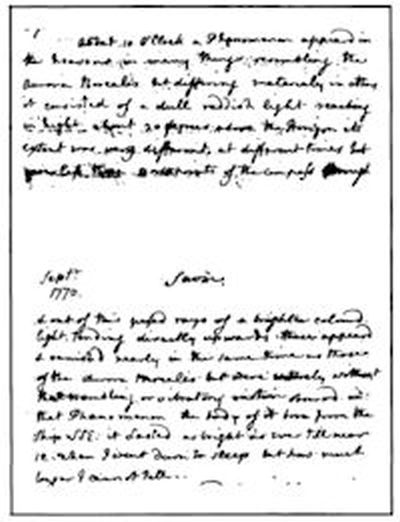 about 10 O'Clock a Phænomenon appeard in
the heavens in many things resembling the
Aurora Borealis but differing materialy in others
it consisted of a dull reddish light reaching
in hight about 20 degrees above the Horizon its
extent was very different at different times but
never less than 8 or 10 points of the compass through
Septr
1770.
Savu.
& out of this passd rays of a brighter colourd
light tending directly upwards these appeard
& vanishd nearly in the same time as those
of the Aurora Borealis but were entirely without
that trembling or vibratory motion observd in
that Phænomenon the body of it bore from the
ship SSE: it lasted as bright as ever till near
12 when I went down to sleep but how much
longer I cannot tell.